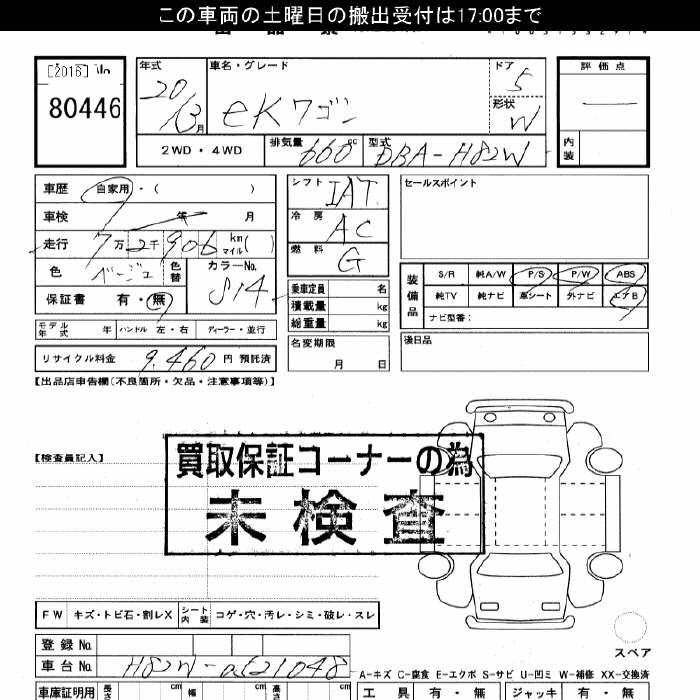 この車両の土曜日の搬出受付は17:00まで
[2016] No
80446
年式 車名・グレード ドア 評価点
20 5
13月 eKワゴン 形状 W
2WD・4WD 排気量 660cc 型式 DBA-H82W 内装
車歴 自家用・( ) シフト IAT セールスポイント
車検 年 月 冷房 AC
走行 7万2千906 km マイル( ) 燃料 G
色 ベージュ 色替 カラーNo. S14
保証書 有・無
乗車定員 名
積載量 kg
総重量 kg
装備品 S/R 純A/W P/S P/W ABS
純TV 純ナビ 革シート 外ナビ エアB
ナビ型番:
モデル年式 年 ハンドル 左・右 ディーラー・並行
名変期限 月 日
後日品
リサイクル料金 9,460 円 預託済
【出品店申告欄(不良箇所・欠品・注意事項等)】
【検査員記入】
買取保証コーナーの為
未検査
FW キズ・トビ石・割レX シート内装 コゲ・穴・汚レ・シミ・破レ・スレ
スペア
登録No.
車台No. H82W-0621048
A-キズ C-腐食 E-エクボ S-サビ U-凹ミ W-補修 XX-交換済
車庫証明用 長さ cm 幅 cm 高さ cm 工具 有・無 ジャッキ 有・無